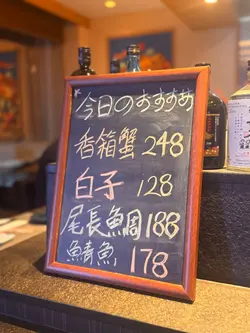 今日のおすすめ
香箱蟹 248
白子 128
尾長鯛 188
鯖魚 178